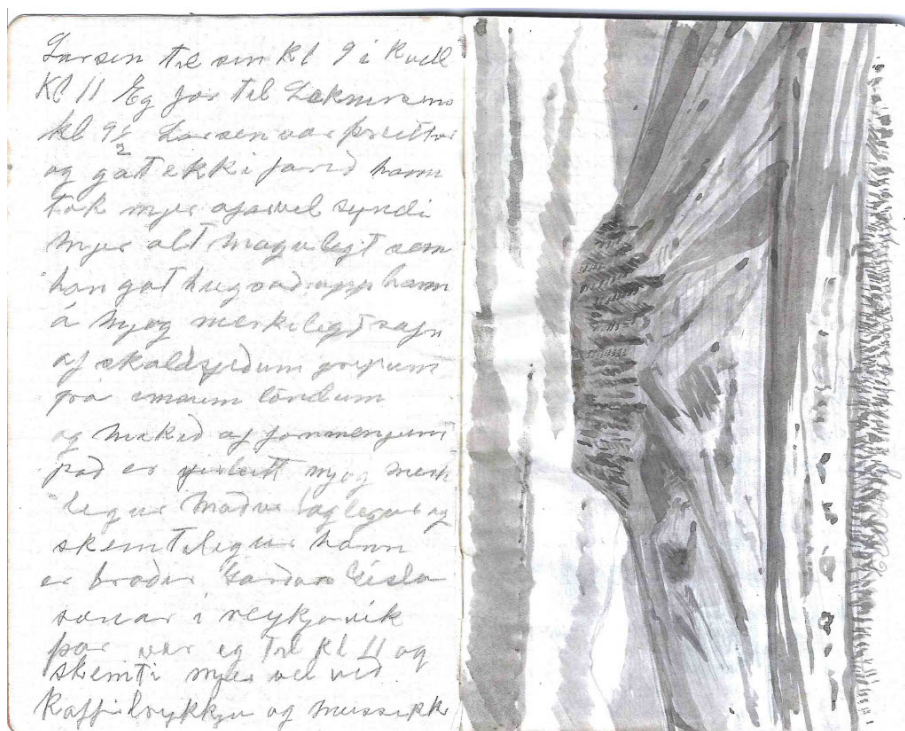 Larsen til sin kl 9 i kveld
Kl 11 Eg for til Leknirsins
kl 9½ Larsen var þreittur
og gat ekki farið hann
tok mjer afarvel syndi
mjer alt mögulegt sem
han gat hugsað upp hann
á mjög merkilegt safn
af skaldsjeðum gripum
frá imsum löndum
og mikið af fornmenjum
það er mjög merk
ilegur maður laglegur og
skemtilegur hann
er broðir Garðars Gísla
sonar i reykjavik
þar var eg til kl 11 og
skemti mjer vel við
Kaffidrykkju og mussikk